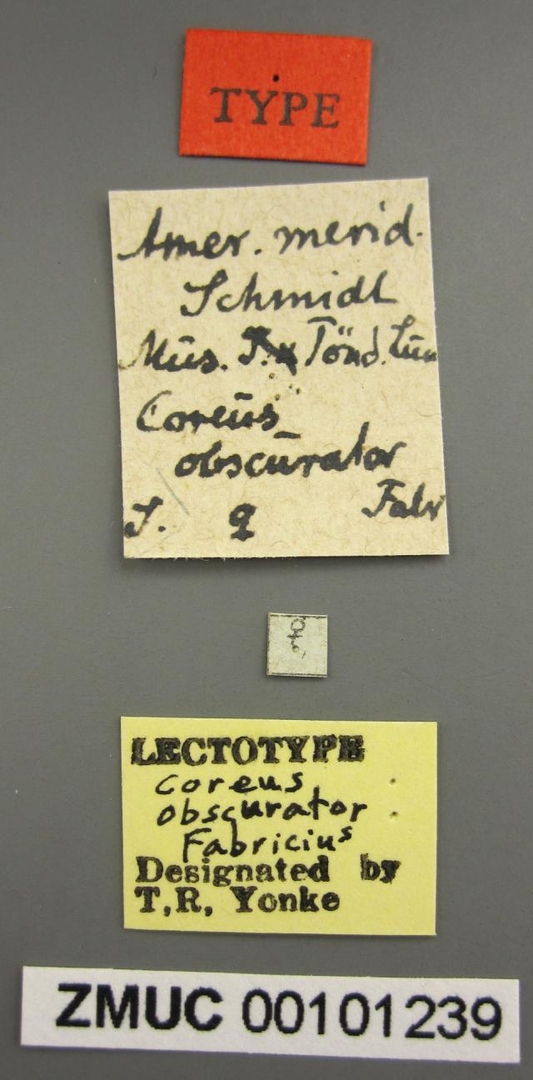 TYPE
Amer. merid.
Schmidt
Mus. Tönd. Lun
Coreus
obscurator
S. Fabr
♀
LECTOTYPE
Coreus
obscurator
Fabricius
Designated by
T,R, Yonke
ZMUC 00101239